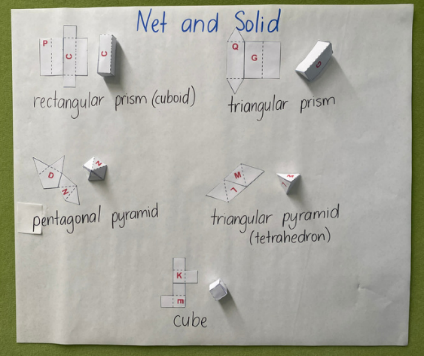 Net and Solid
P
C
C
Q
G
rectangular prism (cuboid)
triangular prism
D
N
N
M
L
pentagonal pyramid
triangular pyramid
(tetrahedron)
K
m
cube